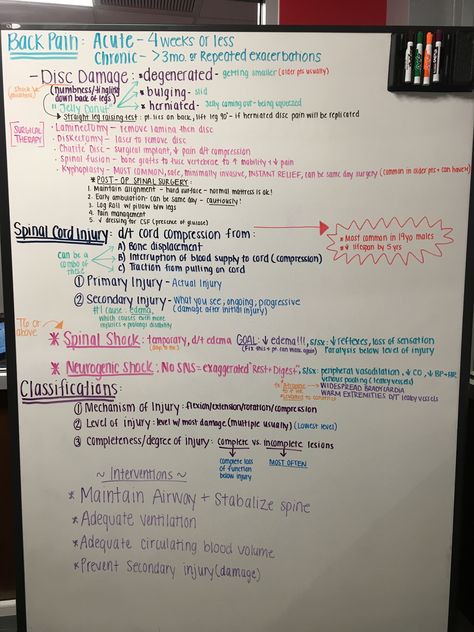 Back Pain: Acute - 4 weeks or less
Chronic - >3mo. or Repeated exacerbations
- Disc Damage: *degenerated - getting smaller (older pts usually)
(numbness/tingling down back of legs)
*bulging - slid
"Jelly Donut"
*herniated - Jelly coming out - being squeezed
Straight leg raising test: pt. lies on back, lift leg 90° - if herniated disc pain will be replicated
SURGICAL THERAPY
• Laminectomy - remove lamina then disc
• Diskectomy - laser to remove disc
• Charite Disc - surgical implant, ↓ pain d/t compression
• Spinal fusion - bone grafts to fuse vertebrae to ↑ mobility + ↓ pain
• Kyphoplasty - MOST COMMON, safe, minimally invasive, INSTANT RELIEF, can be same day surgery (common in older pts + can have
* POST-OP SPINAL SURGERY:
1. Maintain alignment - hard surface - normal mattress is ok!
2. Early ambulation: can be same day - cautiously!
3. Log Roll w/ pillow b/w legs
4. Pain management
5. ✓ dressing for CSF (presence of glucose)
Spinal Cord Injury: d/t cord compression from:
A) Bone displacement
can be a combo of these
B) Interruption of blood supply to cord (compression)
C) Traction from pulling on cord
* Most common in 19yo males
* ↓ lifespan by 5 yrs
① Primary Injury - Actual injury
② Secondary Injury - what you see; ongoing; progressive
#1 cause: edema, (damage after initial injury)
which causes even more injuries + prolongs disability
T6 or above
* Spinal Shock: temporary, d/t edema GOAL: ↓ edema!!!, s/sx: ↓ reflexes, loss of sensation
(Fix this + pt. can walk again) Paralysis below level of injury
* Neurogenic Shock: No SNS = exaggerated "Rest + Digest", s/sx: peripheral vasodilation, ↓ CO, ↓ BP + HR,
venous pooling (leaky vessels)
WIDESPREAD BRADYCARDIA
WARM EXTREMITIES D/T leaky vessels
Classifications:
① Mechanism of Injury: flexion/extension/rotation/compression
② Level of injury: level w/ most damage (multiple usually) (Lowest level)
③ Completeness/degree of injury: complete vs. incomplete lesions
complete loss of function below injury
MOST OFTEN
~ Interventions ~
* Maintain Airway + Stabalize spine
* Adequate ventilation
* Adequate circulating blood volume
* Prevent Secondary injury (damage)